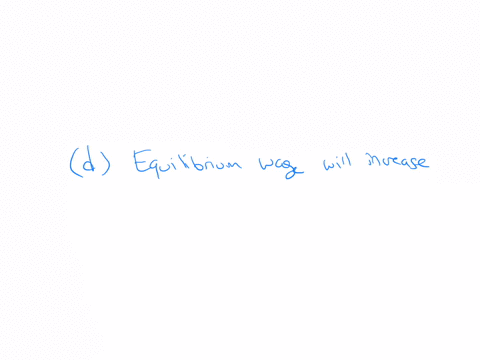 (d) Equilibrium wage will increase